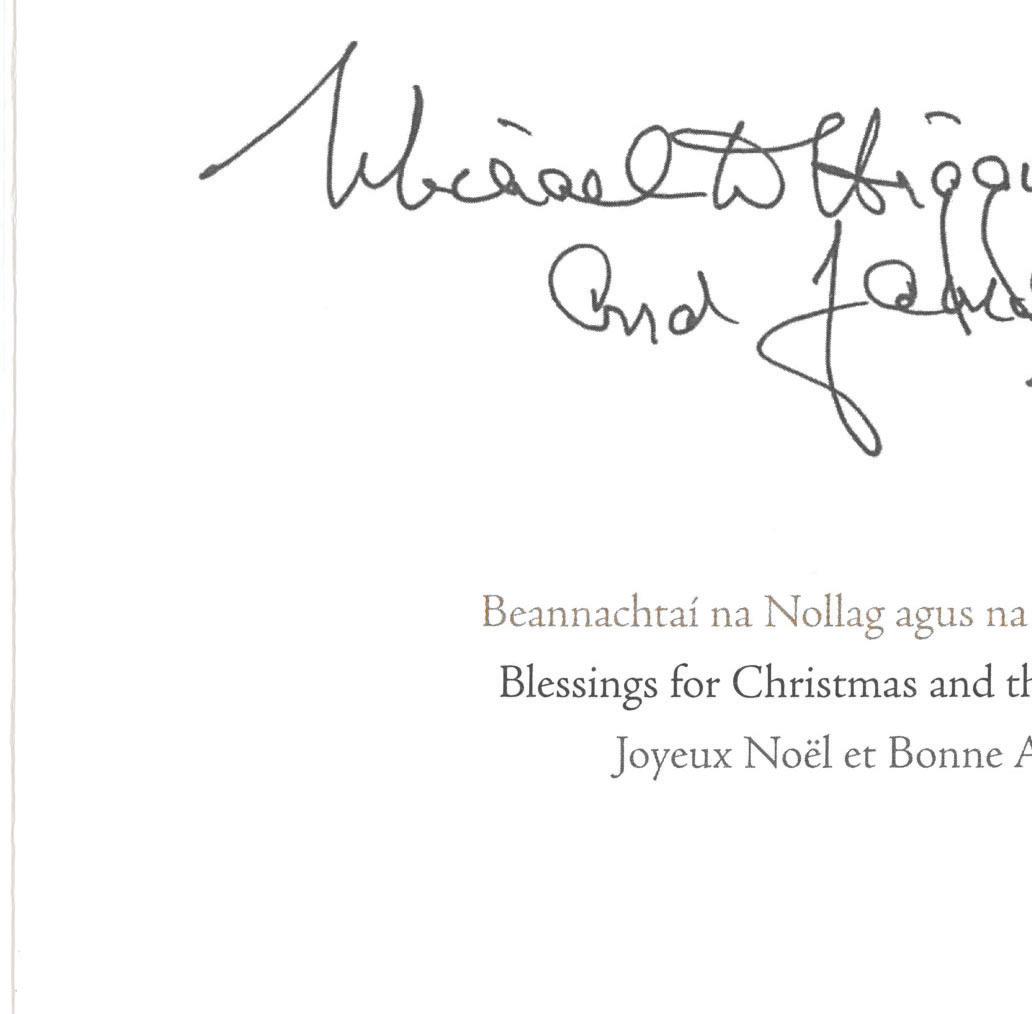 Michael D Higgi
and Sabina
Beannachtaí na Nollag agus na
Blessings for Christmas and th
Joyeux Noël et Bonne A